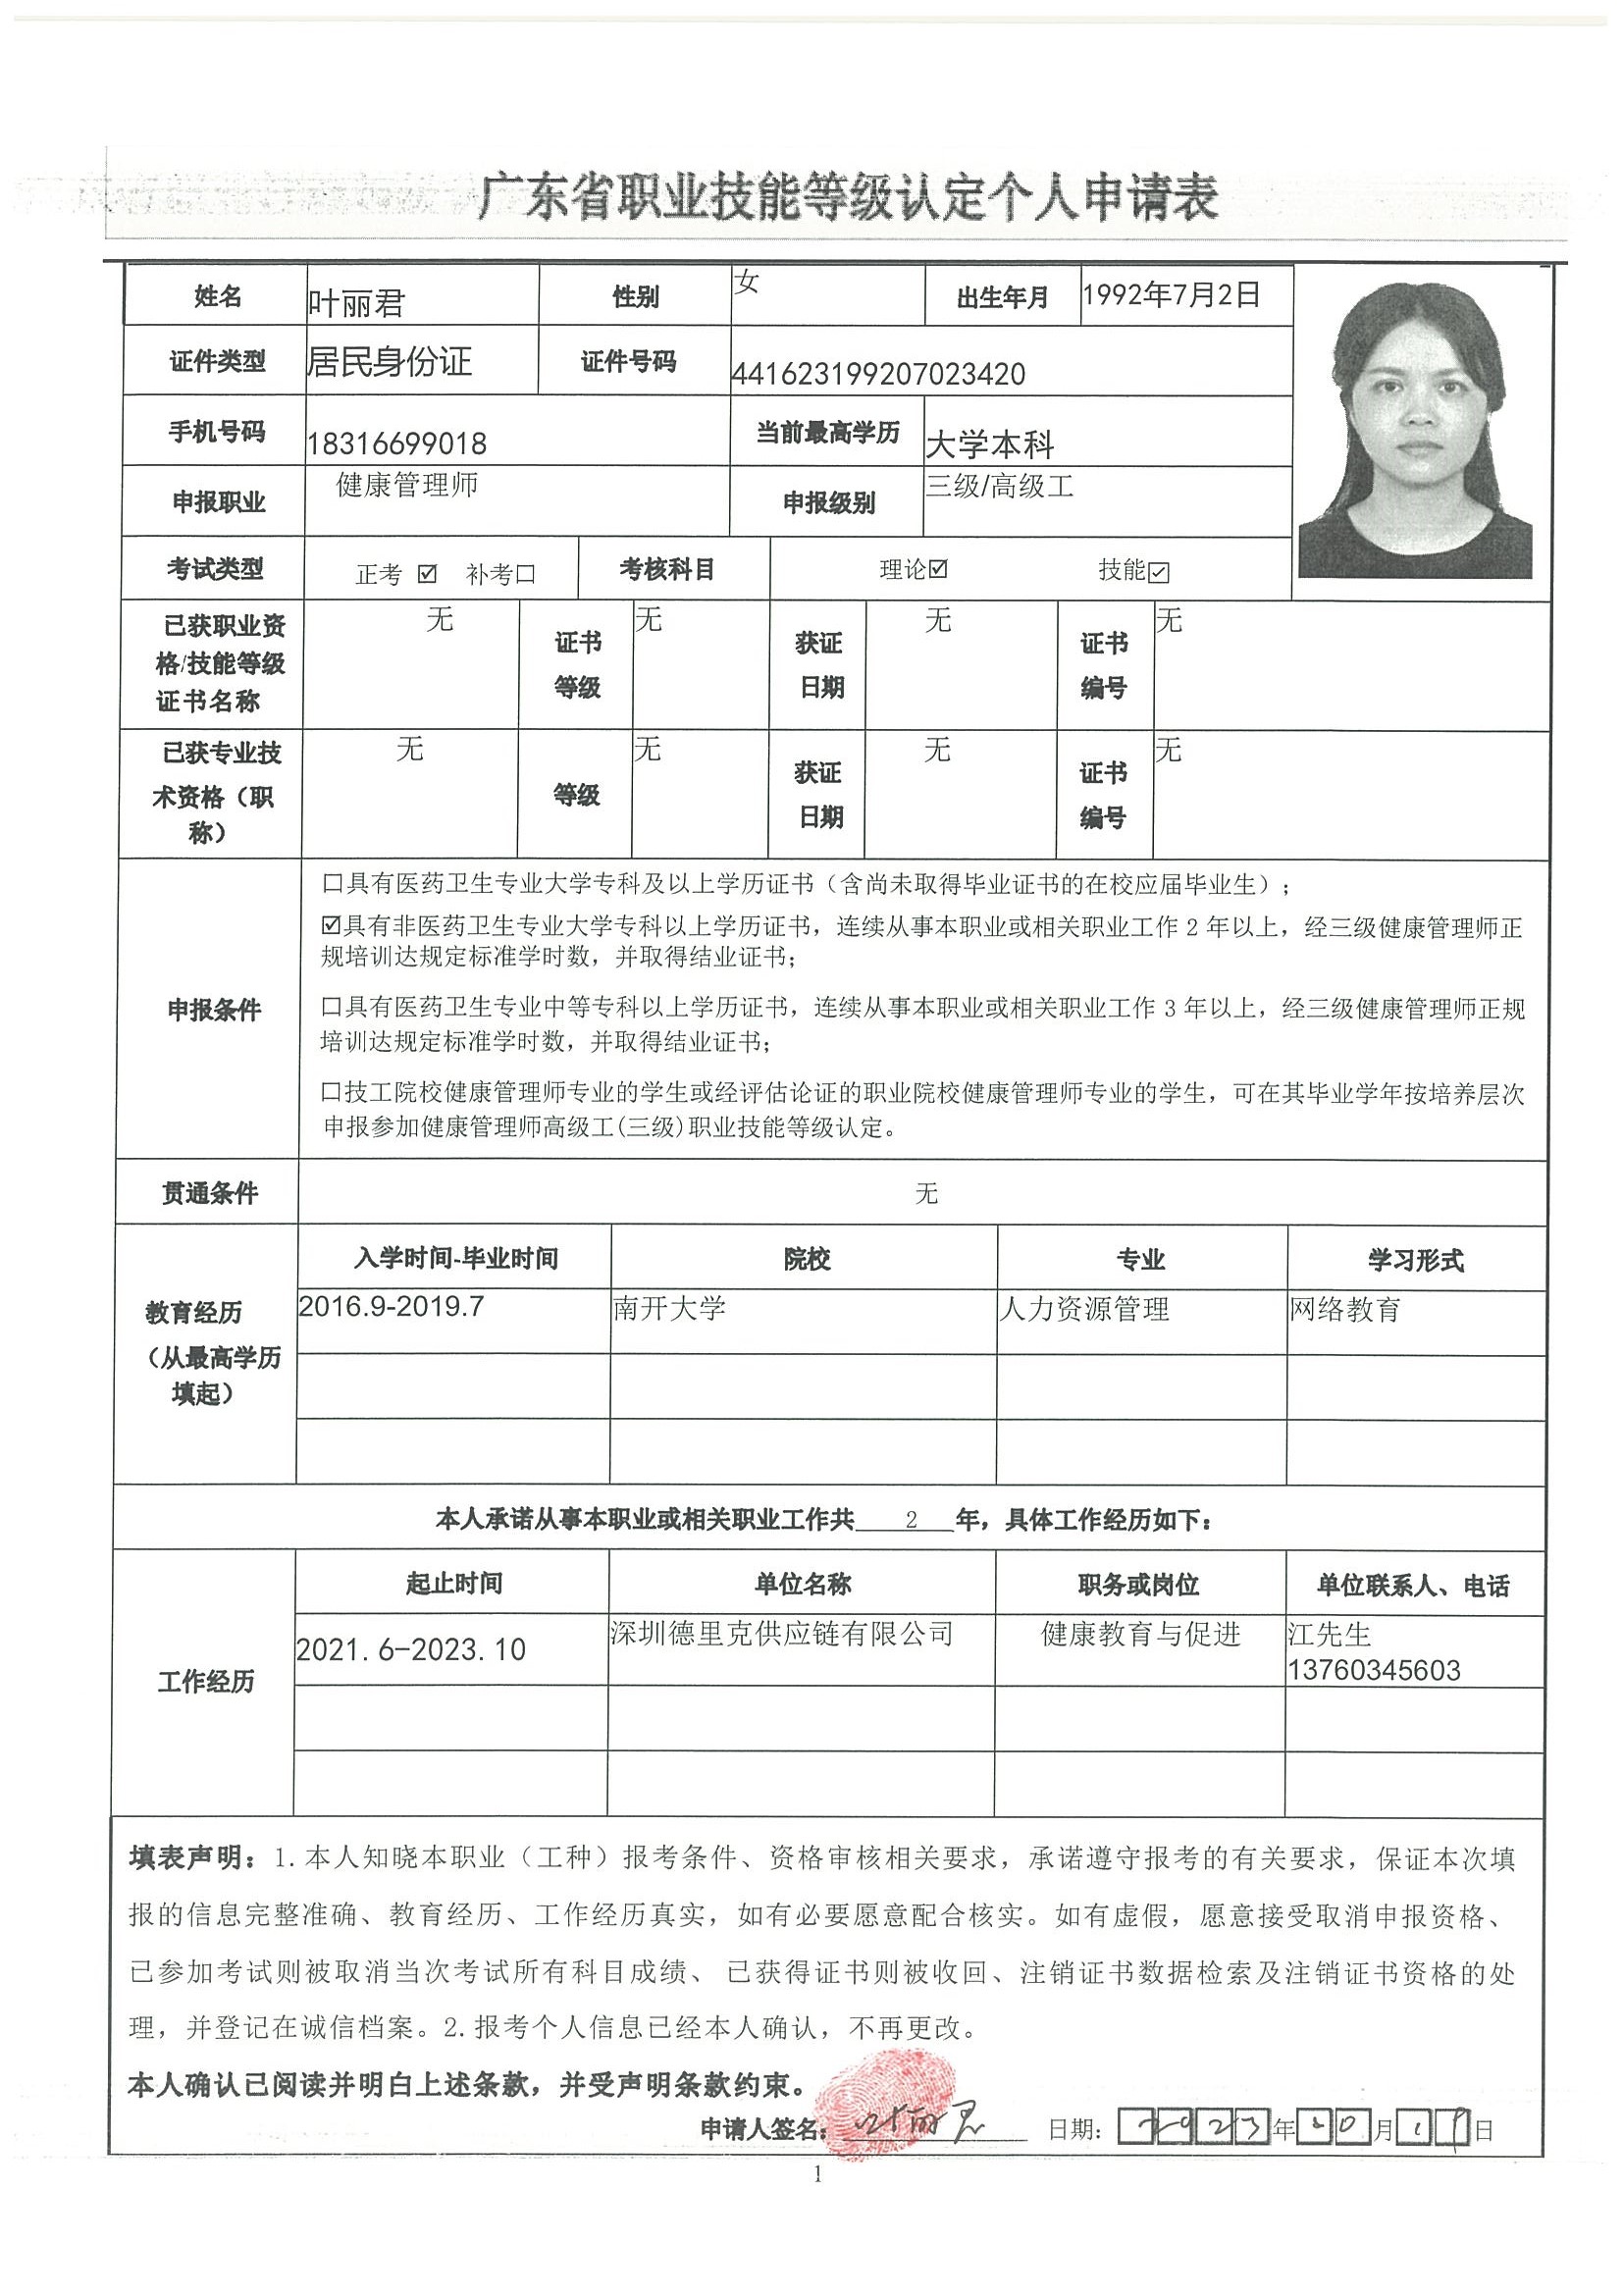 广东省职业技能等级认定个人申请表
姓名 叶丽君 性别 女 出生年月 1992年7月2日
证件类型 居民身份证 证件号码 441623199207023420
手机号码 18316699018 当前最高学历 大学本科
申报职业 健康管理师 申报级别 三级/高级工
考试类型 正考 ☑ 补考口 考核科目 理论☑ 技能☑
已获职业资
格/技能等级
证书名称
无
证书
等级
无
获证
日期
无
证书
编号
无
已获专业技
术资格（职
称）
无
等级
无
获证
日期
无
证书
编号
无
申报条件
口具有医药卫生专业大学专科及以上学历证书（含尚未取得毕业证书的在校应届毕业生）；
☑具有非医药卫生专业大学专科以上学历证书，连续从事本职业或相关职业工作 2 年以上，经三级健康管理师正
规培训达规定标准学时数，并取得结业证书；
口具有医药卫生专业中等专科以上学历证书，连续从事本职业或相关职业工作 3 年以上，经三级健康管理师正规
培训达规定标准学时数，并取得结业证书；
口技工院校健康管理师专业的学生或经评估论证的职业院校健康管理师专业的学生，可在其毕业学年按培养层次
申报参加健康管理师高级工(三级)职业技能等级认定。
贯通条件 无
教育经历
（从最高学历
填起）
入学时间-毕业时间 院校 专业 学习形式
2016.9-2019.7 南开大学 人力资源管理 网络教育
本人承诺从事本职业或相关职业工作共 2 年，具体工作经历如下：
工作经历
起止时间 单位名称 职务或岗位 单位联系人、电话
2021.6-2023.10 深圳德里克供应链有限公司 健康教育与促进 江先生
13760345603
填表声明：1.本人知晓本职业（工种）报考条件、资格审核相关要求，承诺遵守报考的有关要求，保证本次填
报的信息完整准确、教育经历、工作经历真实，如有必要愿意配合核实。如有虚假，愿意接受取消申报资格、
已参加考试则被取消当次考试所有科目成绩、 已获得证书则被收回、注销证书数据检索及注销证书资格的处
理，并登记在诚信档案。2.报考个人信息已经本人确认，不再更改。
本人确认已阅读并明白上述条款，并受声明条款约束。
申请人签名： 叶丽君 日期： 2023年 月19日
1